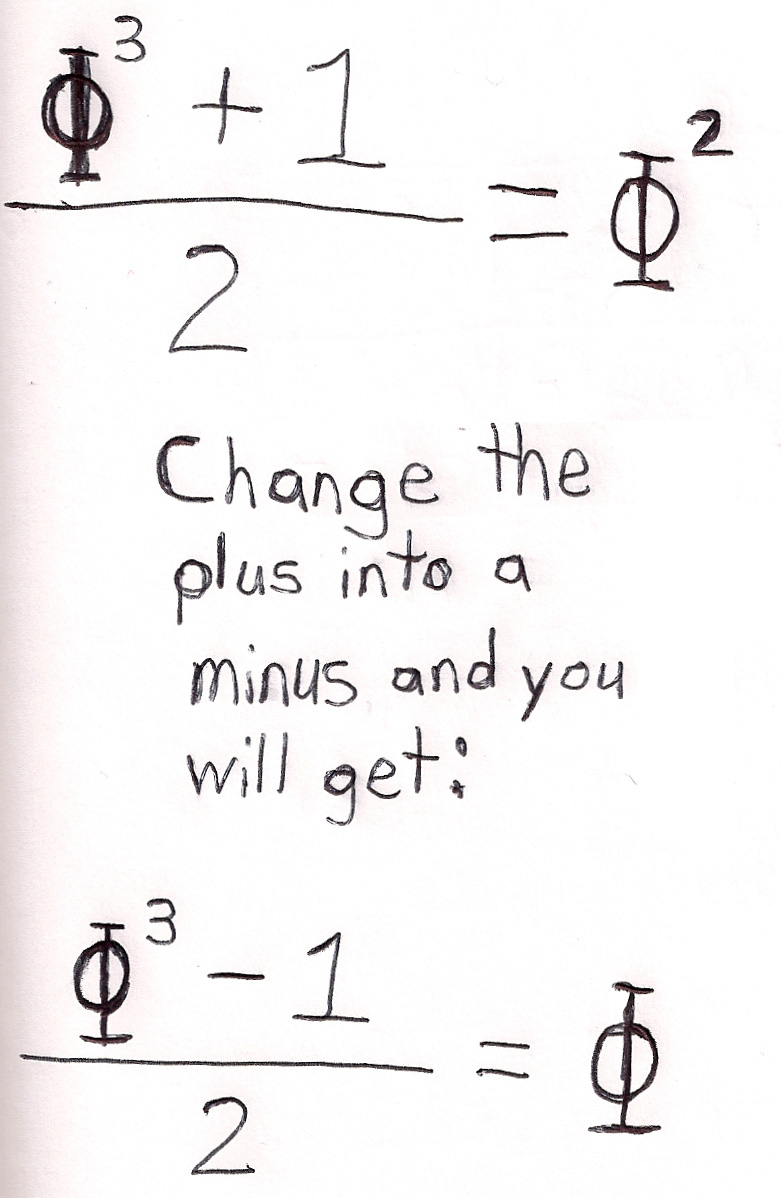 Φ³ + 1
2
= Φ²
Change the
plus into a
minus and you
will get:
Φ³ - 1
2
= Φ